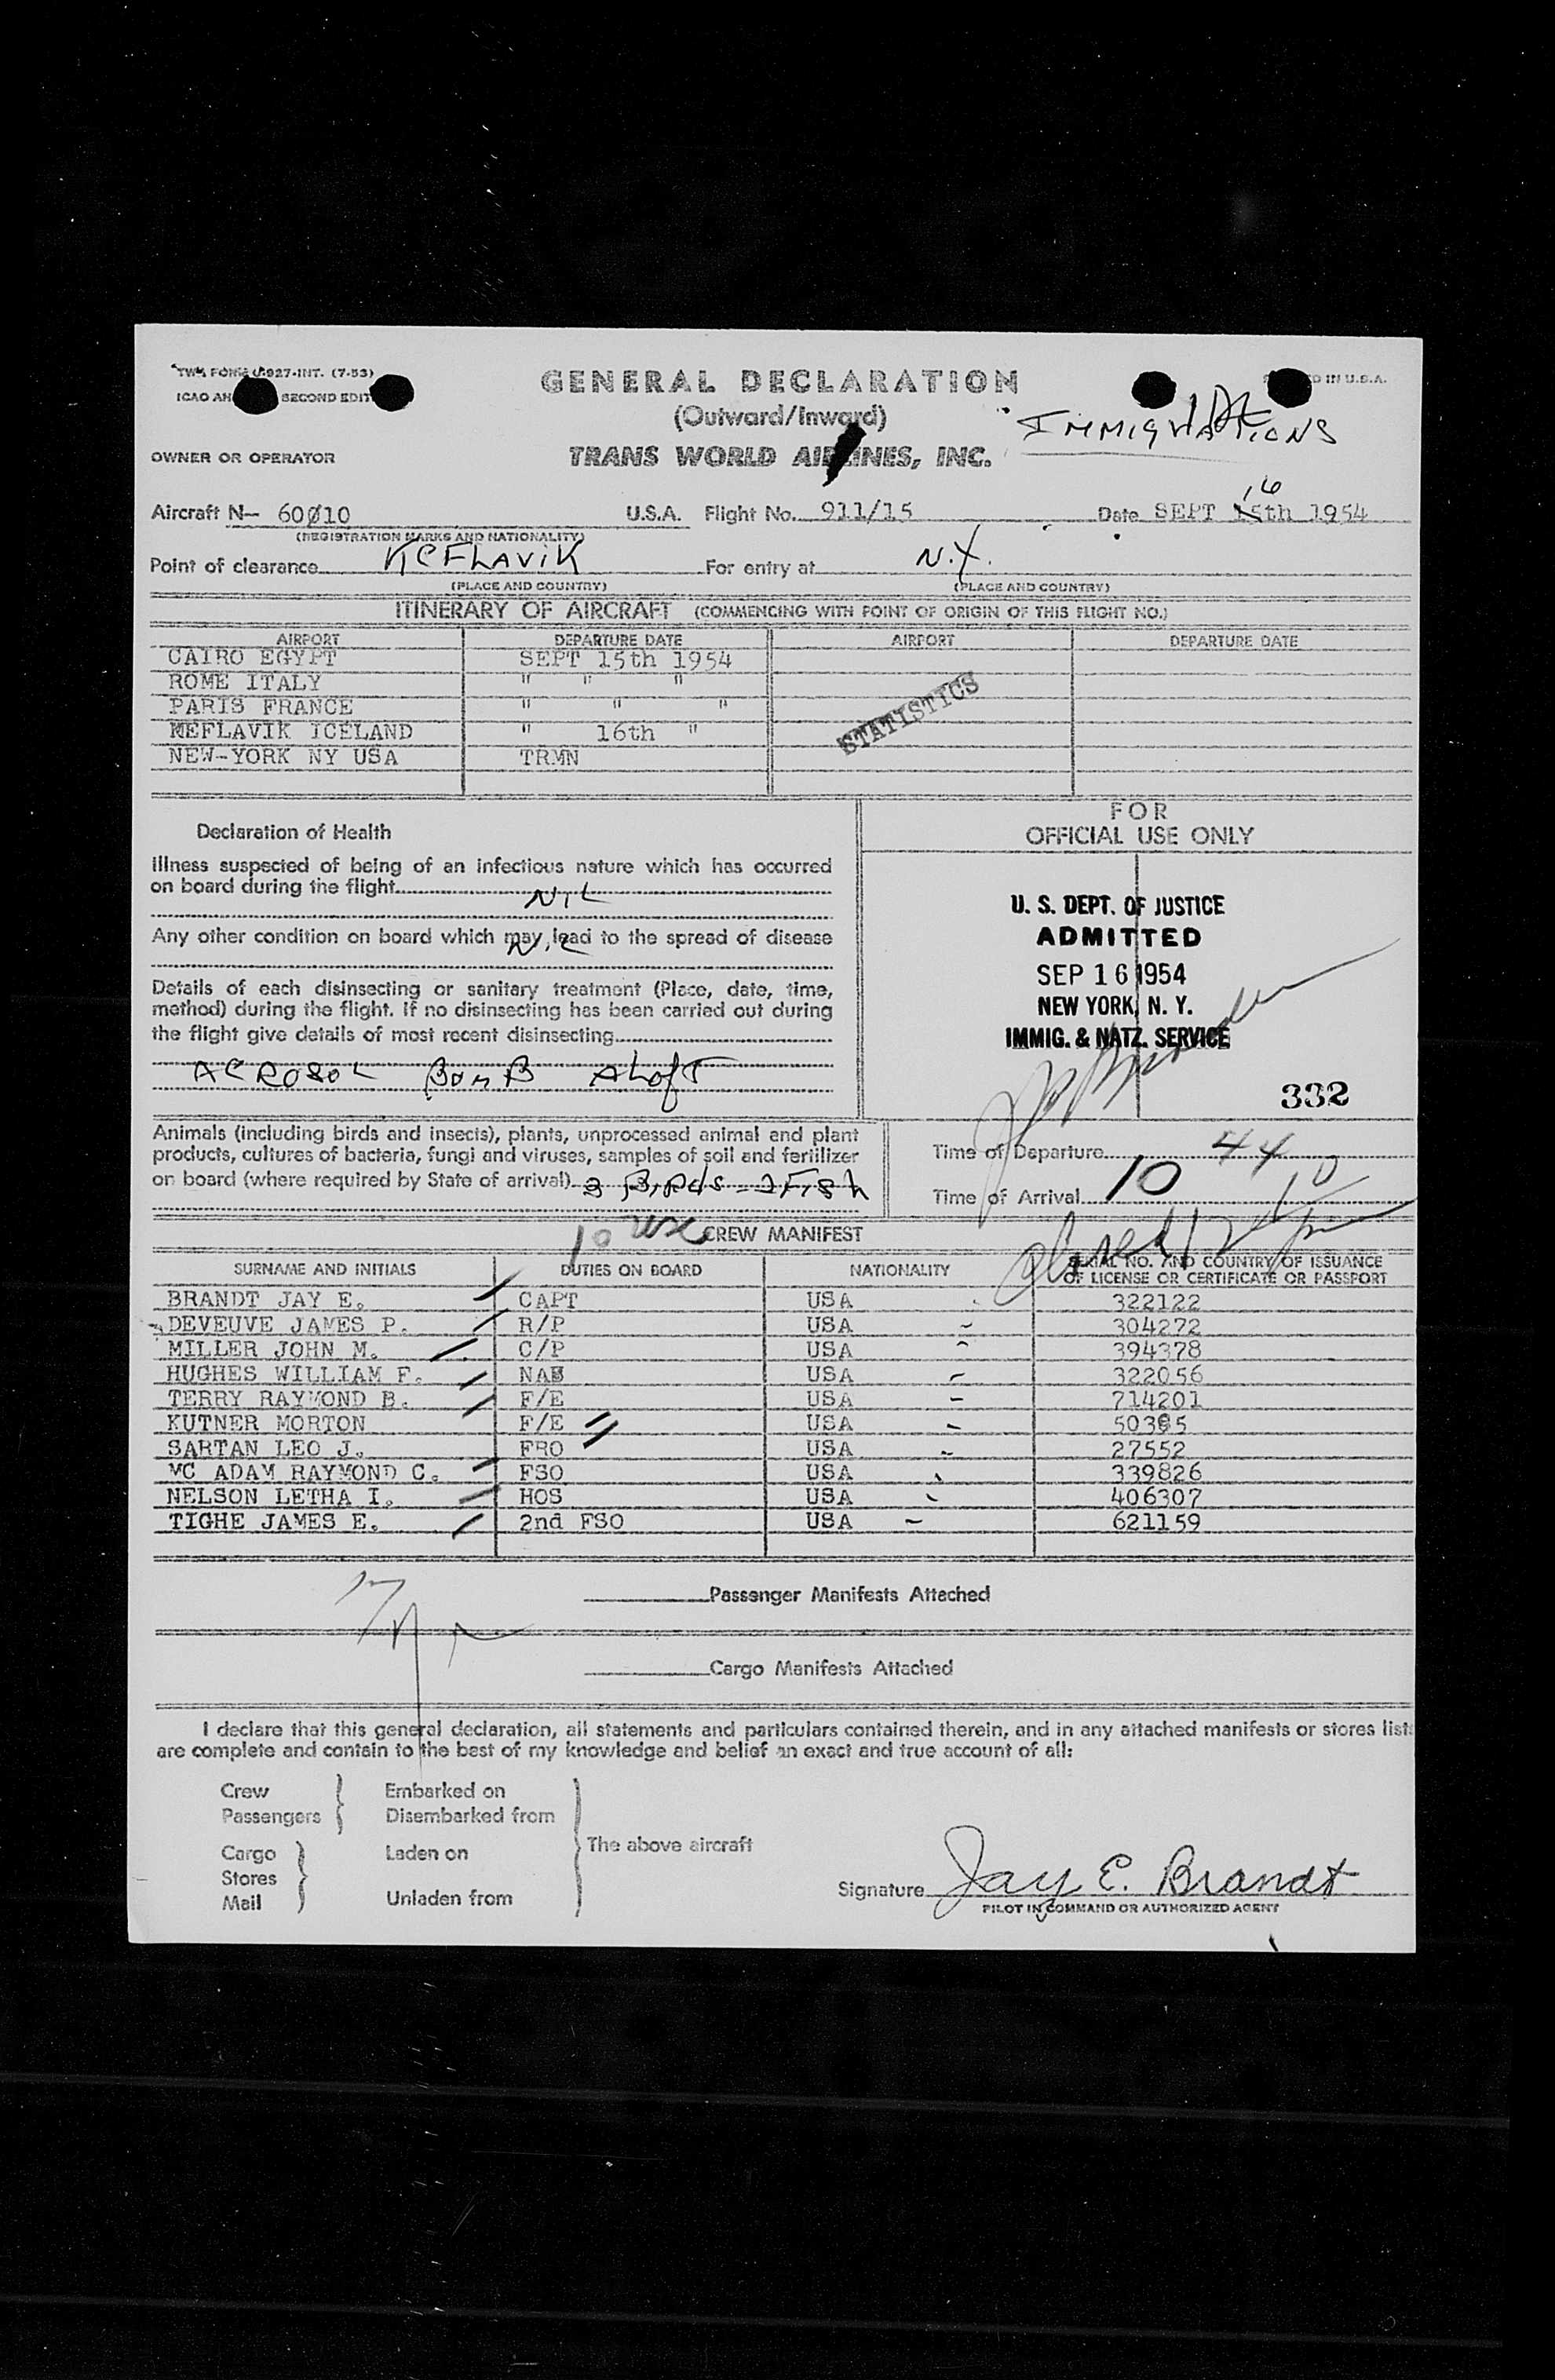 GENERAL DECLARATION
(Outward/Inward)
IMMIGRATIONS
OWNER OR OPERATOR
TRANS WORLD AIRLINES, INC.
Aircraft N— 60010 U.S.A. Flight No. 911/15 Date SEPT 15th 1954
16
(REGISTRATION MARKS AND NATIONALITY)
Point of clearance KEFLAVIK For entry at N.Y.
(PLACE AND COUNTRY) (PLACE AND COUNTRY)
ITINERARY OF AIRCRAFT (COMMENCING WITH POINT OF ORIGIN OF THIS FLIGHT NO.)
AIRPORT DEPARTURE DATE AIRPORT DEPARTURE DATE
CAIRO EGYPT SEPT 15th 1954
ROME ITALY " " "
PARIS FRANCE " " "
KEFLAVIK ICELAND " 16th "
NEW-YORK NY USA TRMN
STATISTICS
Declaration of Health
Illness suspected of being of an infectious nature which has occurred
on board during the flight
NIL
Any other condition on board which may lead to the spread of disease
NIL
Details of each disinsecting or sanitary treatment (Place, date, time,
method) during the flight. If no disinsecting has been carried out during
the flight give details of most recent disinsecting
AEROSOL BOMB ALOFT
FOR
OFFICIAL USE ONLY
U. S. DEPT. OF JUSTICE
ADMITTED
SEP 16 1954
NEW YORK, N. Y.
IMMIG. & NATZ. SERVICE
332
Animals (including birds and insects), plants, unprocessed animal and plant
products, cultures of bacteria, fungi and viruses, samples of soil and fertilizer
on board (where required by State of arrival) 3 Birds - 2 Fish
Time of Departure 44
Time of Arrival 10
10 usc
CREW MANIFEST
SURNAME AND INITIALS DUTIES ON BOARD NATIONALITY SERIAL NO. AND COUNTRY OF ISSUANCE
OF LICENSE OR CERTIFICATE OR PASSPORT
BRANDT JAY E. CAPT USA 322122
DEVEUVE JAMES P. R/P USA 304272
MILLER JOHN M. C/P USA 394378
HUGHES WILLIAM F. NAV USA 322056
TERRY RAYMOND B. F/E USA 714201
KUTNER MORTON F/E USA
SARTAN LEO J. FRO USA 27552
MC ADAM RAYMOND C. FSO USA 339826
NELSON LETHA I. HOS USA 406307
TIGHE JAMES E. 2nd FSO USA 621159
Passenger Manifests Attached
Cargo Manifests Attached
I declare that this general declaration, all statements and particulars contained therein, and in any attached manifests or stores lists
are complete and contain to the best of my knowledge and belief an exact and true account of all:
Crew Embarked on
Passengers Disembarked from
The above aircraft
Cargo Laden on
Stores
Mail Unladen from
Signature Jay E. Brandt
PILOT IN COMMAND OR AUTHORIZED AGENT